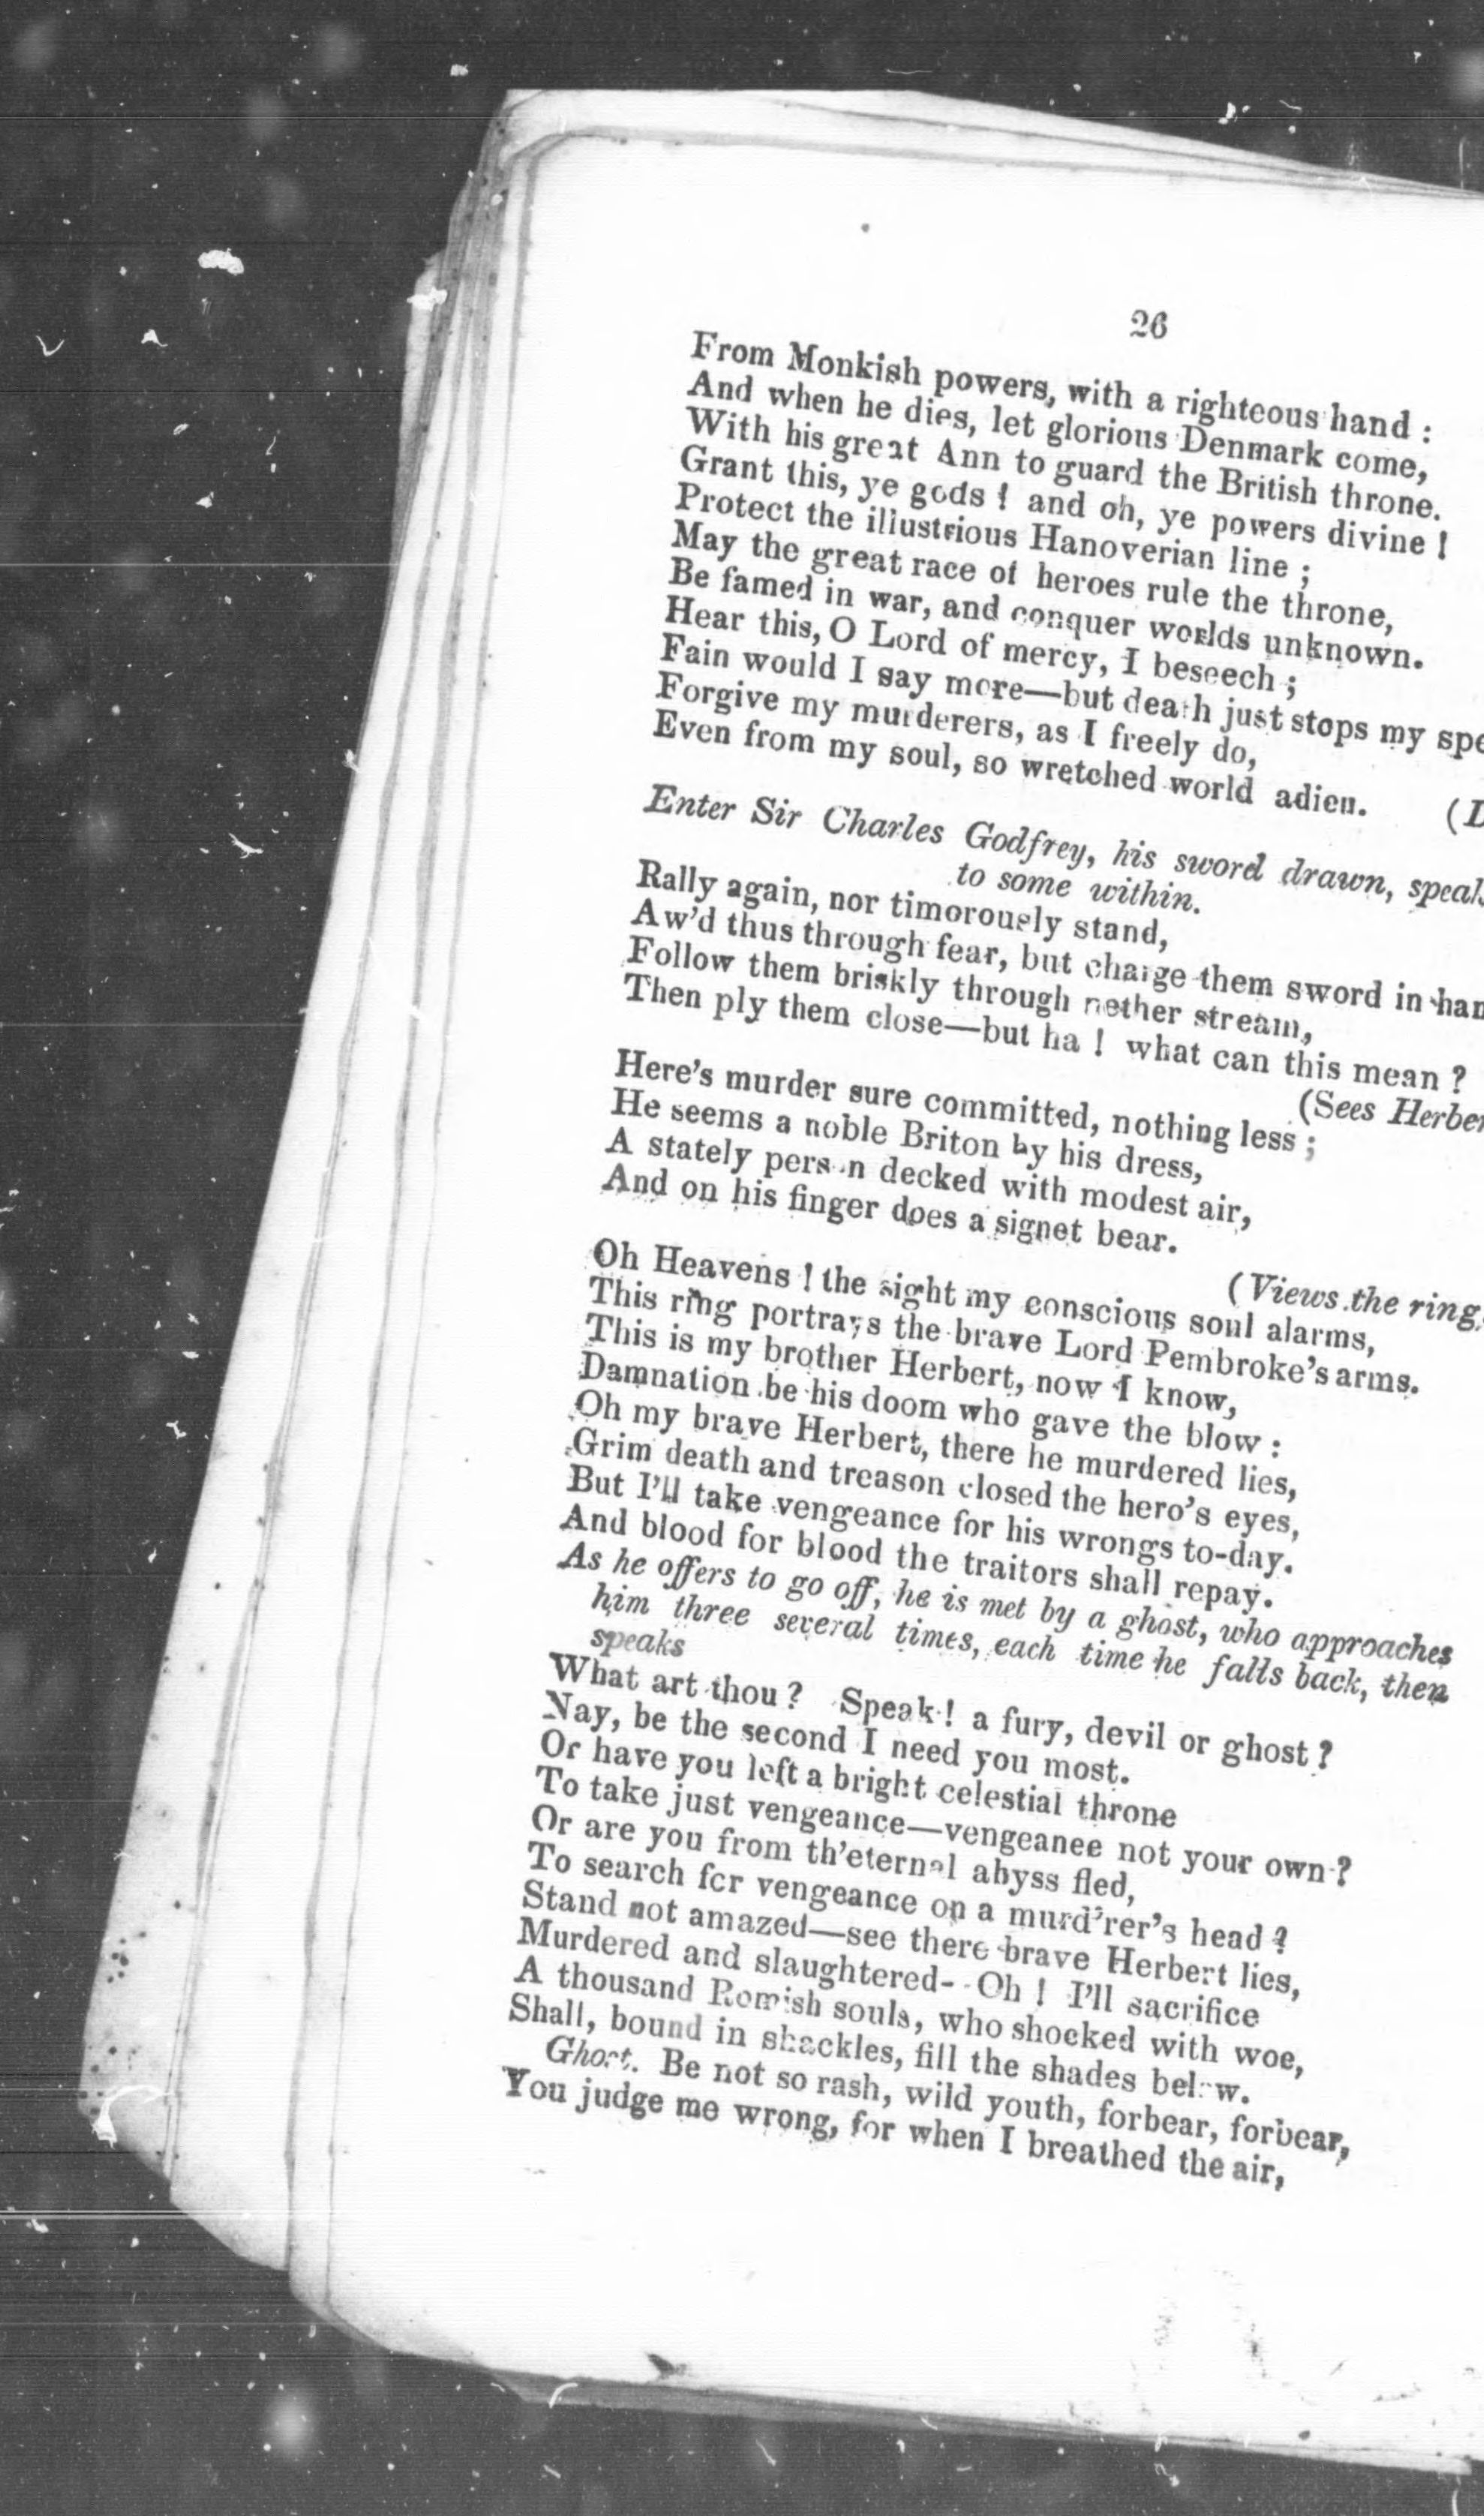 26
From Monkish powers, with a righteous hand :
And when he dies, let glorious Denmark come,
With his great Ann to guard the British throne.
Grant this, ye gods ! and oh, ye powers divine !
Protect the illustrious Hanoverian line ;
May the great race of heroes rule the throne,
Be famed in war, and conquer worlds unknown.
Hear this, O Lord of mercy, I beseech ;
Fain would I say more—but death just stops my spe
Forgive my murderers, as I freely do,
Even from my soul, so wretched world adieu. (D
Enter Sir Charles Godfrey, his sword drawn, speaks
to some within.
Rally again, nor timorously stand,
Aw'd thus through fear, but charge them sword in han
Follow them briskly through nether stream,
Then ply them close—but ha ! what can this mean ?
(Sees Herber
Here's murder sure committed, nothing less ;
He seems a noble Briton by his dress,
A stately person decked with modest air,
And on his finger does a signet bear.
(Views the ring.
Oh Heavens ! the sight my conscious soul alarms,
This ring portrays the brave Lord Pembroke's arms.
This is my brother Herbert, now I know,
Damnation be his doom who gave the blow :
Oh my brave Herbert, there he murdered lies,
Grim death and treason closed the hero's eyes,
But I'll take vengeance for his wrongs to-day.
And blood for blood the traitors shall repay.
As he offers to go off, he is met by a ghost, who approaches
him three several times, each time he falls back, then
speaks
What art thou ? Speak ! a fury, devil or ghost ?
Nay, be the second I need you most.
Or have you left a bright celestial throne
To take just vengeance—vengeanee not your own ?
Or are you from th'eternal abyss fled,
To search for vengeance on a murd'rer's head ?
Stand not amazed—see there brave Herbert lies,
Murdered and slaughtered- - Oh ! I'll sacrifice
A thousand Romish souls, who shocked with woe,
Shall, bound in shackles, fill the shades below.
Ghost. Be not so rash, wild youth, forbear, forbear,
You judge me wrong, for when I breathed the air,